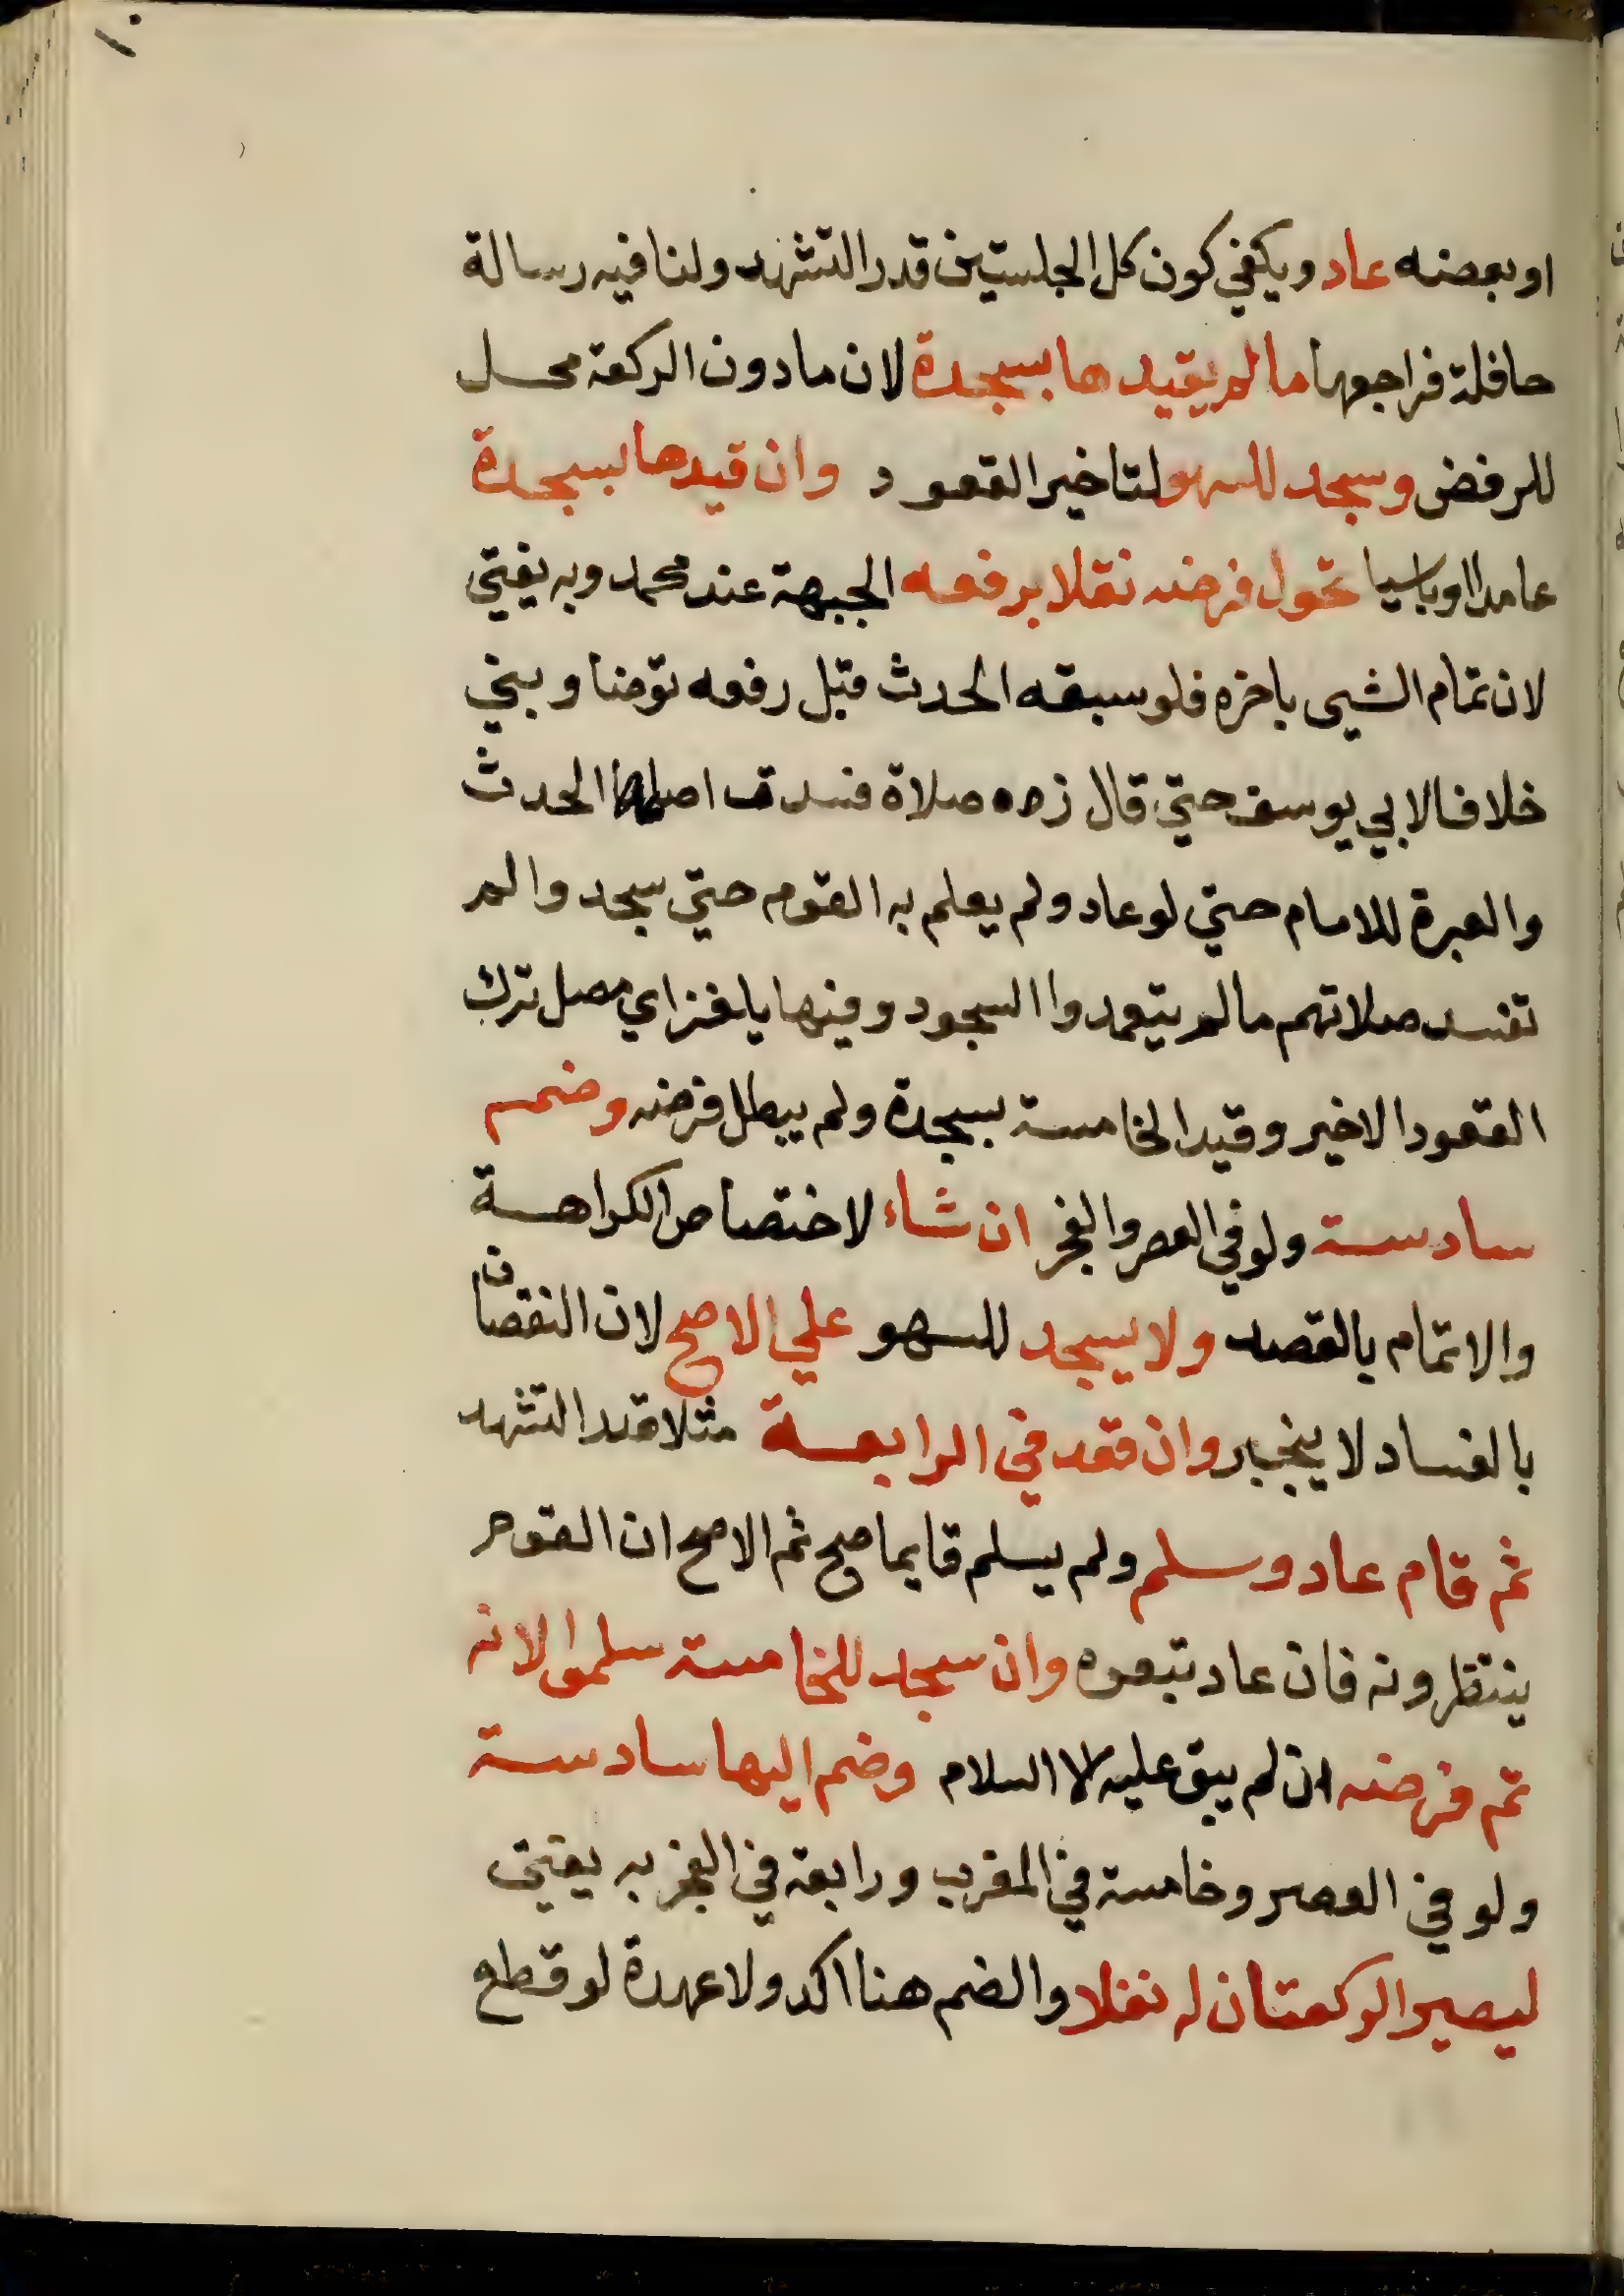 ١٠
او بعضه عاد ويكفي كون كل الجلستين قدر التشهد ولنا فيه رسالة
حافلة فراجعها ما لم يقيدها بسجدة لان ما دون الركعة محل
للرفض وسجد للسهو لتاخير القعود وان قيدها بسجدة
عامدا او ناسيا تحول فرضه نفلا برفعه الجبهة عند محمد وبه يفتي
لان تمام الشيى باخره فلو سبقه الحدث قبل رفعه توضا وبني
خلافا لابي يوسف حتي قال زه صلاة فسدت اصلحها الحدث
والعبرة للامام حتي لو عاد ولم يعلم به القوم حتي سجدوا لم
تفسد صلاتهم ما لم يتعمدوا السجود وفيها يلغز اي مصل ترك
القعود الاخير وقيد الخامسة بسجدة ولم يبطل فرضه وضم
سادسة ولو في العصر والفجر ان شاء لاختصاص الكراهة
والاتمام بالقصد ولا يسجد للسهو علي الاصح لان النقصان
بالفساد لا ينجبر وان قعد في الرابعة مثلا قدر التشهد
ثم قام عاد وسلم ولم يسلم قايما صح ثم الاصح ان القوم
ينتظرونه فان عاد تبعوه وان سجد للخامسة سلموا لانه
تم فرضه ان لم يبق عليه الا السلام وضم اليها سادسة
ولو في العصر وخامسة في المغرب ورابعة في الفجر به يفتي
ليصير الركعتان له نفلا والضم هنا اكد ولا عهدة لو قطع